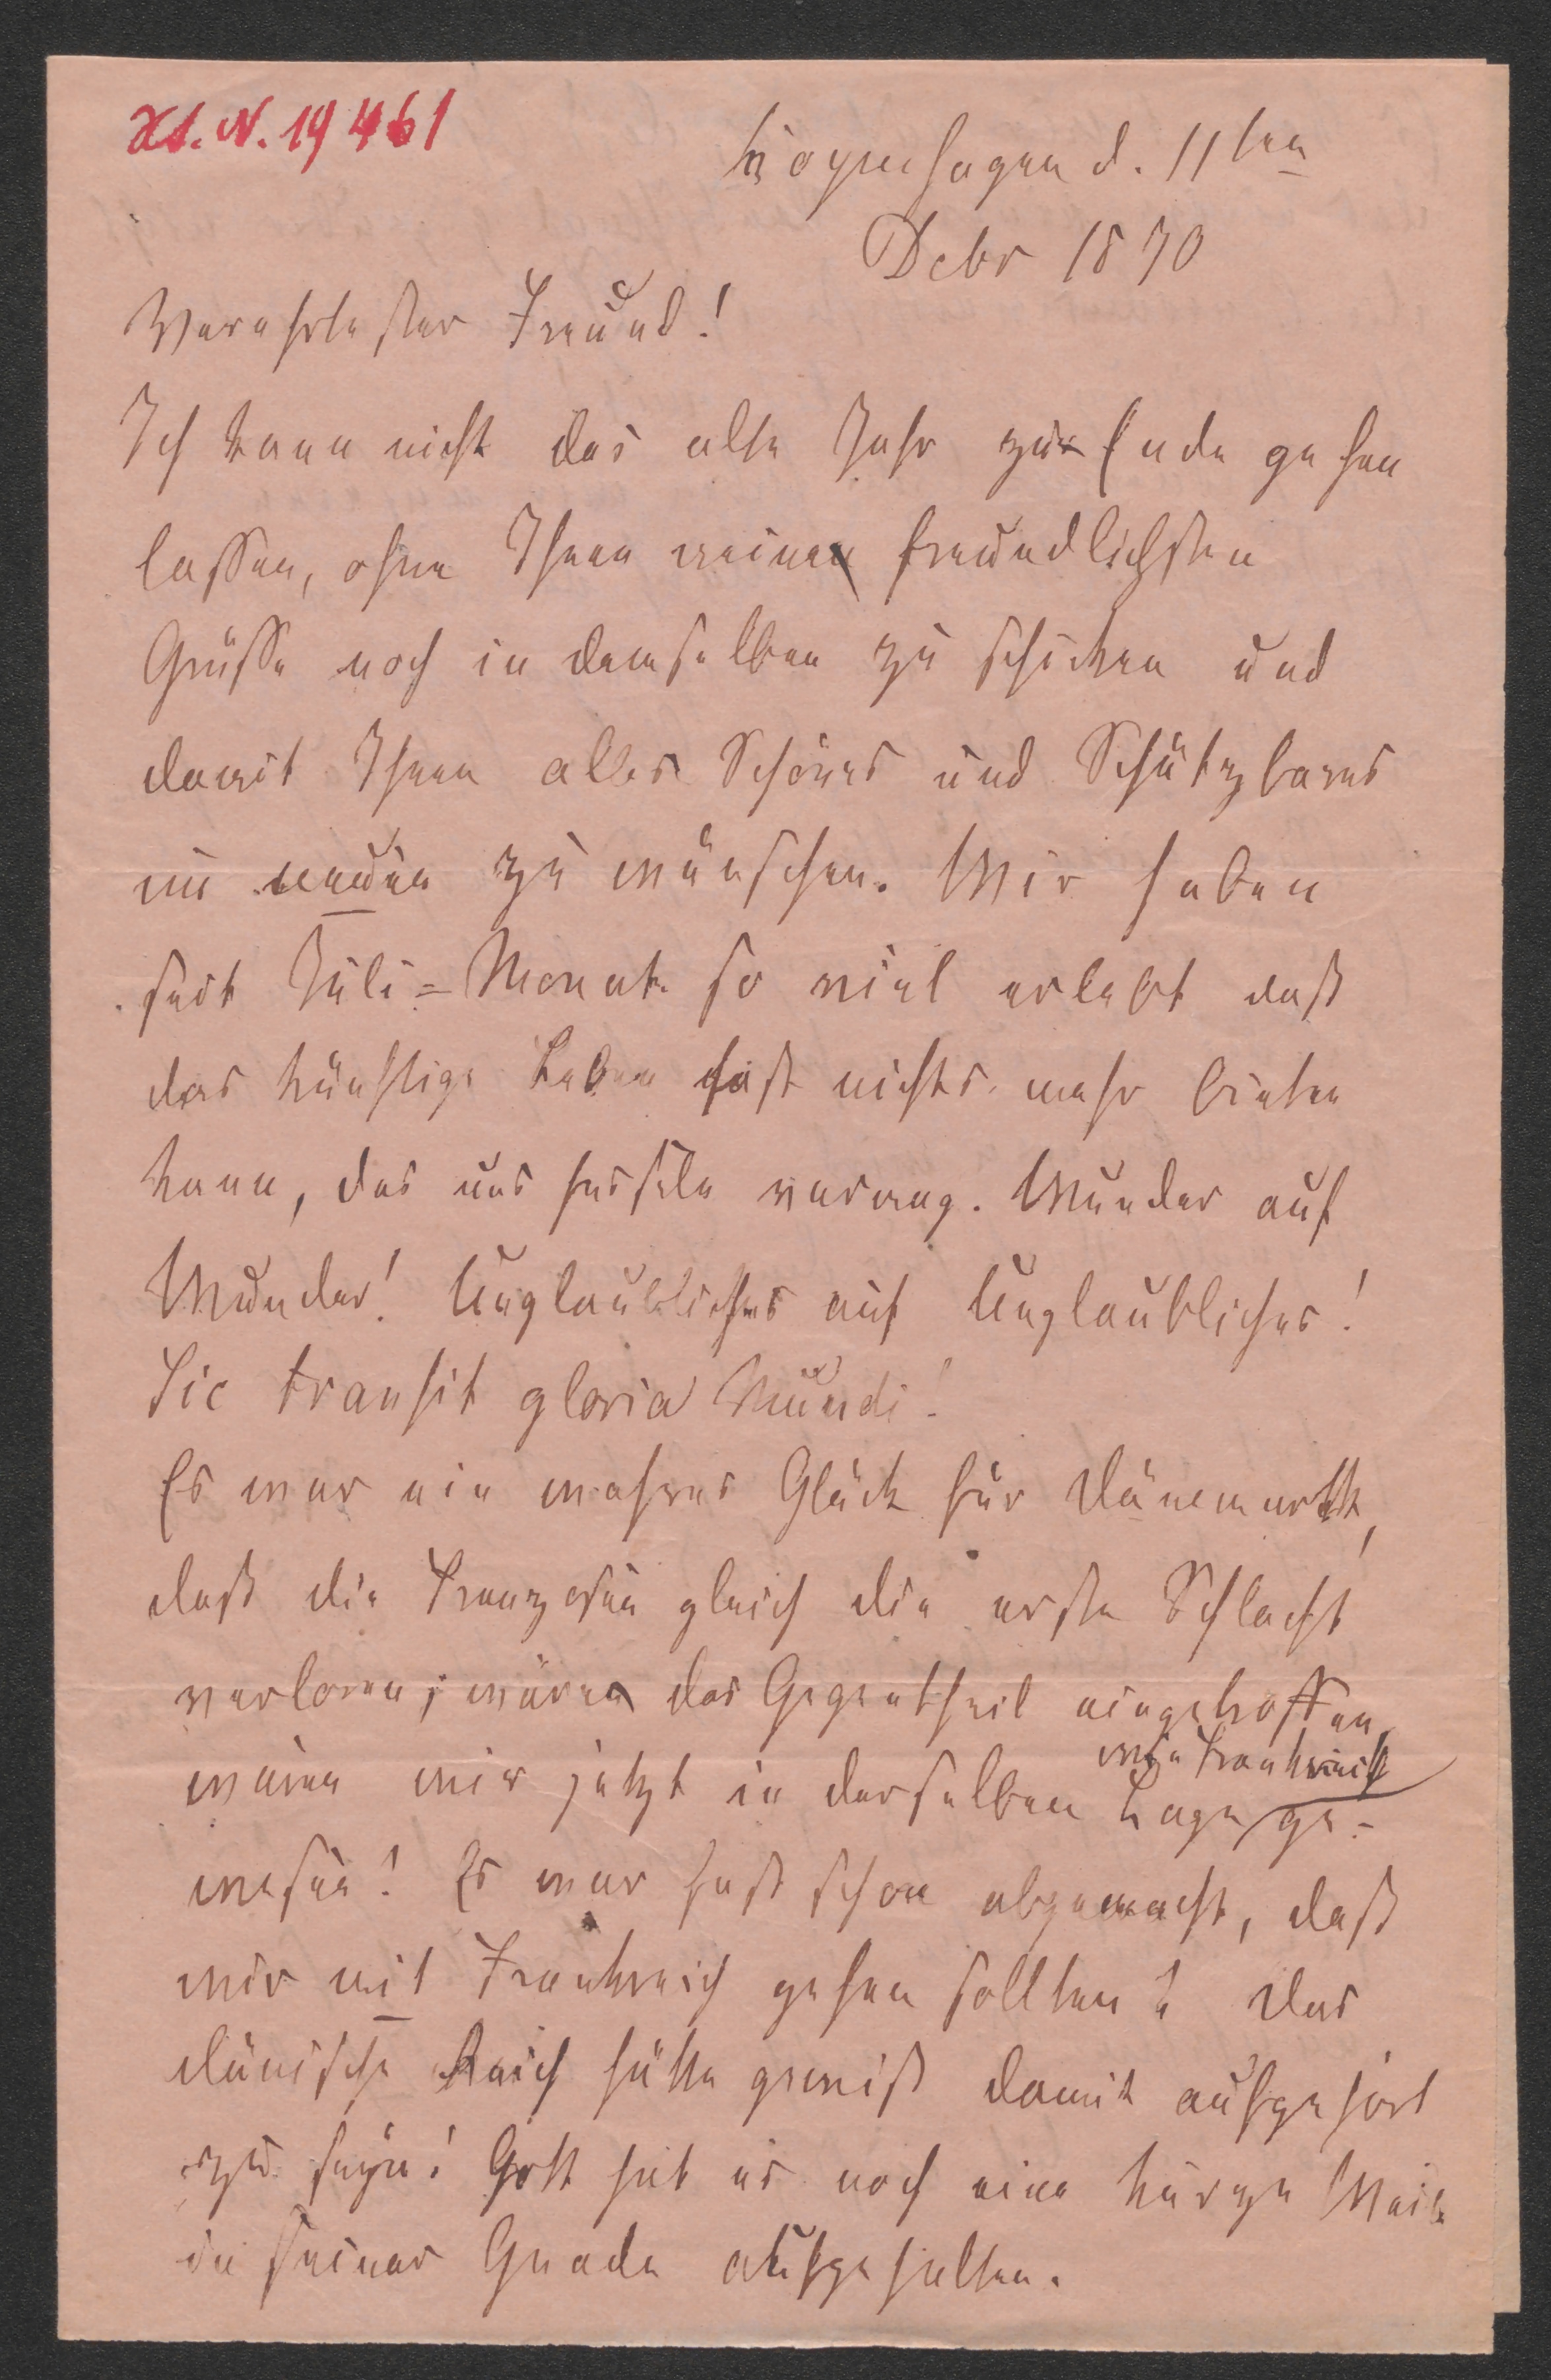 H.I.N. 19461
Kopenhagen d. 11ten
Debr 1870
Verehrtester Freund!
Ich kann nicht das alte Jahr zu Ende gehen
lassen, ohne Ihnen meine freundlichsten
Grüsse noch in demselben zu schicken und
damit Ihnen alles Schönes und Schätzbares
im neuen zu wünschen. Wir haben
seit Juli=Monat so viel erlebt daß
das künftige Leben fast nichts mehr bieten
kann, das uns fesseln vermag. Wunder auf
Wunder! Unglaubliches auf Unglaubliches!
Sic transit gloria Mundi!
Es war ein wahres Glück für Dänemark,
daß die Franzosen gleich die erste Schlacht
verloren; wäre das Gegentheil eingetroffen,
wie Frankreich
wären wir jetzt in derselben Lage ge-
wesen! Es war fast schon abgemacht, daß
wir mit Frankreich gehen sollten! Das
dänische Reich hätte gewiß damit aufgehört
zu seyn! Gott hat es noch eine kurze Weile
in seiner Gnade aufgehalten.